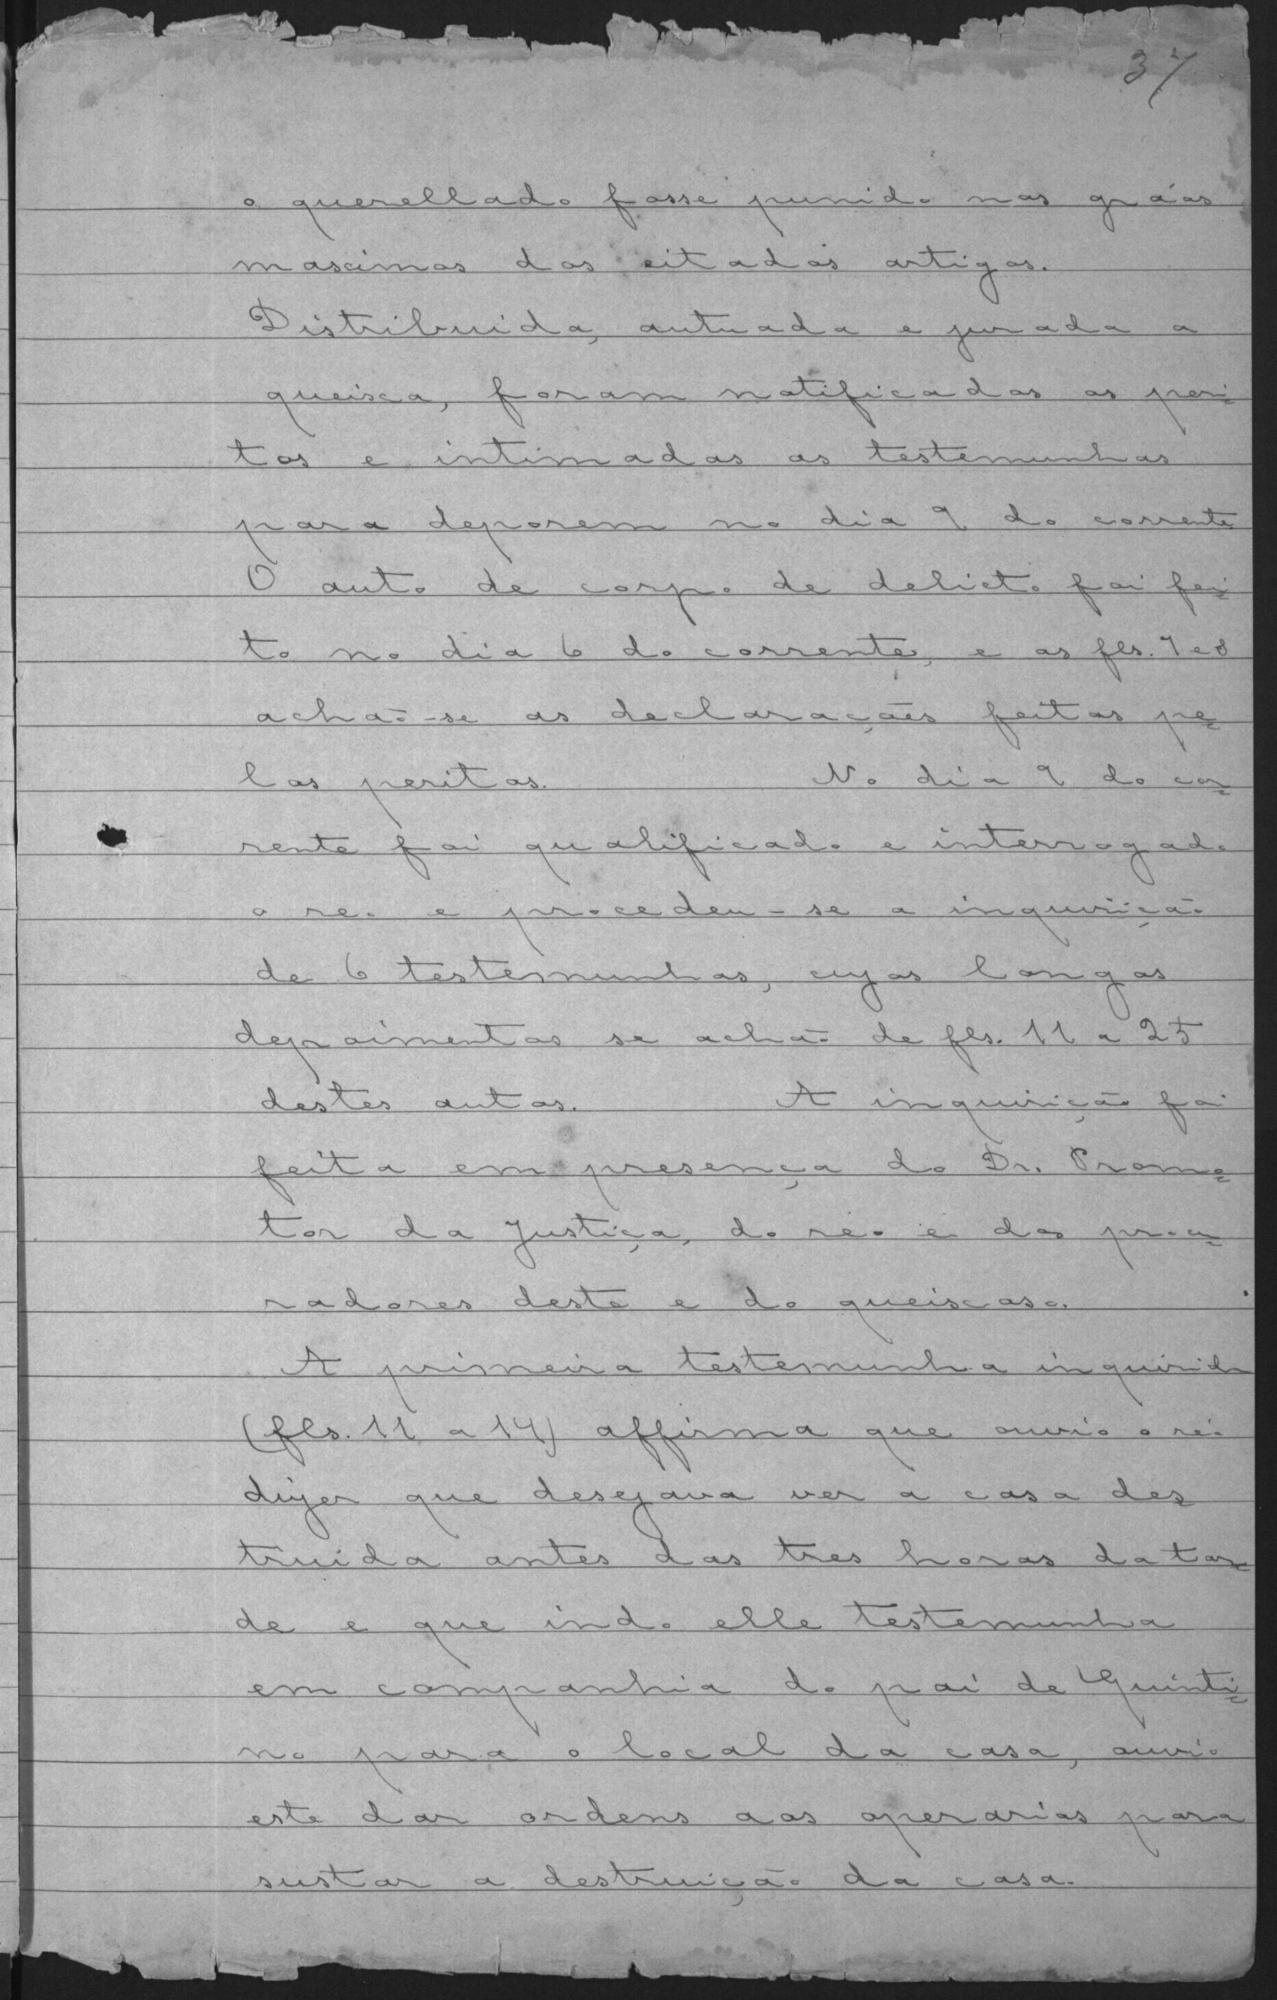 37
o querellado fosse punido nos gráos
maximos dos citados artigos.
Distribuida, autuada e jurada a
queixa, foram notificados os peri-
tos e intimadas as testemunhas
para deporem no dia 9 do corrente
O auto de corpo de delicto foi fei-
to no dia 6 do corrente, e as fls. 7 e 8
achaō-se as declarações feitas pe-
los peritos. No dia 9 do cor-
rente foi qualificado e interrogado
o reo e procedeu-se a inquirição
de 6 testemunhas, cujos longos
depoimentos se achaō de fls. 11 a 25
destes autos. A inquirição foi
feita em presença do Dr. Promo-
tor da Justiça, do reo e dos procu-
radores deste e do queixoso.
A primeira testemunha inquirida
(fls. 11 a 14) affirma que ouvio o reo
dizer que desejava ver a casa des-
truida antes das tres horas da tar-
de e que indo elle testemunha
em companhia do pai de Quinti-
no para o local da casa, ouvio
este dar ordens aos operarios para
sustar a destruição da casa.